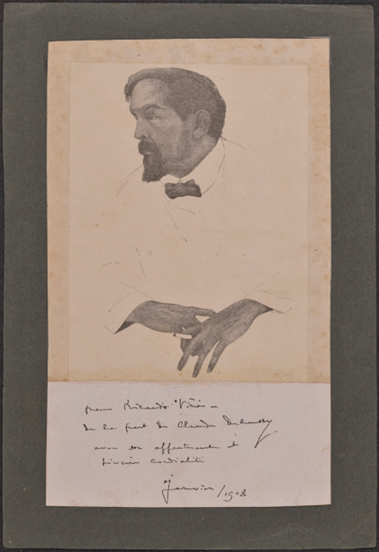 pour Ricardo Viñes —
de la part de Claude Debussy.
avec son affectueuse et
sincère cordialité
Janvier /1908